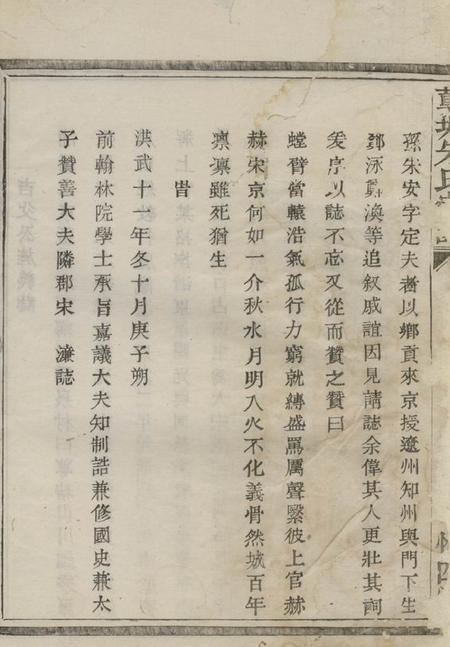 孫朱安字定夫者以鄉貢來京授遼州知州與門下生
鄧泳鄭渙等追叙戚誼因見請誌余偉其人更壯其詞
爰序以誌不忘又從而贊之贊曰
螳臂當轅浩氣孤行力窮就縛盛罵厲聲緊彼上官赫
赫宋京何如一介秋水月明入火不化義骨然城百年
凛凛雖死猶生
旹
洪武十一年冬十月庚子朔
前翰林院學士承旨嘉議大夫知制誥兼修國史兼太
子贊善大夫隣郡宋濂誌